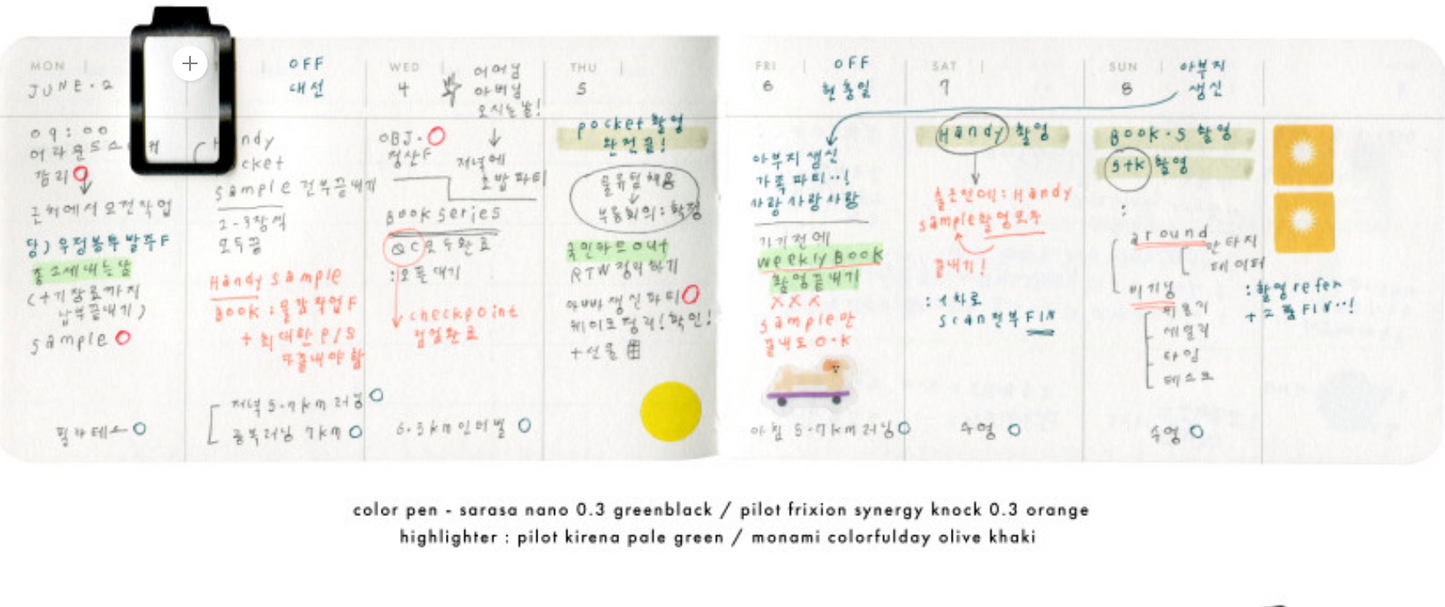 MON
JUNE. 2
09:00
감리
근처에서 오전작업
당) 우정봉투 발주 F
종소세 내는 날
(+기장료까지
납부끝내기)
sample
필라테스
OFF
대선
Handy
sample 전부끝내기
2-3장씩
모두끝
Handy sample
BOOK : 물감작업 F
+ 최대한 P/S
다끝내야 함
저녁 5-7km 러닝
공복러닝 7km
WED
4
어머님
아버님
오시는 날!
OBJ.
정산F
저녁에
초밥파티
Book series
QC 모두완료
:오픈대기
checkpoint
점검완료
6.5km 인터벌
THU
5
pocket 촬영
완전끝!
물류팀채용
부용회의:확정
국민하드out
RTW 정리하기
아빠생신파티
페이드정리!확인!
+선물
FRI
6
OFF
현충일
아부지 생신
가족파티··!
사랑사랑사랑
가기전에
weekly BOOK
촬영끝내기
XXX
sample만
끝내도 O.K
아침 5-7km러닝
SAT
7
Handy 촬영
출근전에: Handy
sample촬영모두
끝내기!
:1차로
scan 전부 FIN
수영
SUN
8
아부지
생신
BOOK.S 촬영
stk 촬영
:
around
판타지
데이터
비기닝
데일리
타임
데스크
수영
:촬영 refer
+소품 FIN··!
color pen - sarasa nano 0.3 greenblack / pilot frixion synergy knock 0.3 orange
highlighter : pilot kirena pale green / monami colorfulday olive khaki